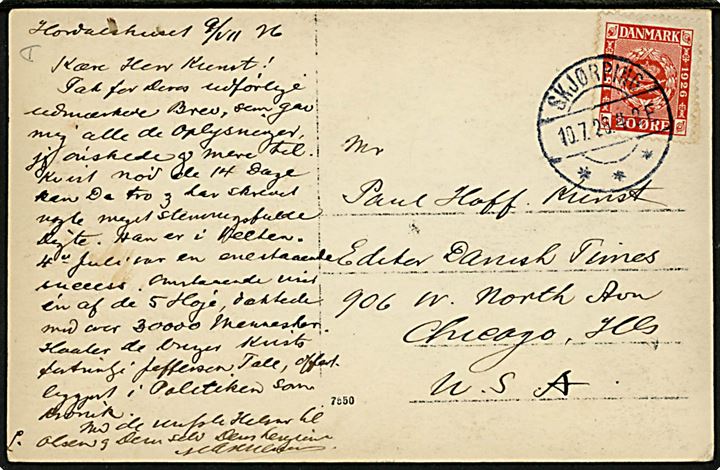 9/VII 26
Kære Herr Kunst!
Tak for Deres udførlige
udmærkede Brev, som gav
mig alle de Oplysninger,
jeg ønskede og mere til.
nød de 14 Dage
kan De tro og har skrevet
meget stemningsfulde
Digte. Han er i
4de Juli var en enestaaende
success.
én af de 5 Høje, dækkede
med over 30000 Mennesker.
Haaber de bruger
Jefferson Tale,
i Politiken som
Kronik.
Med de Hilsner til
Olsen og Dem selv
7850
DANMARK
1926
20 ØRE
SKJØRPING
10.7.26.
Mr
Paul Hoff. Kunst
Editor Danish Times
906 W. North Avn
Chicago, Ills
U.S.A